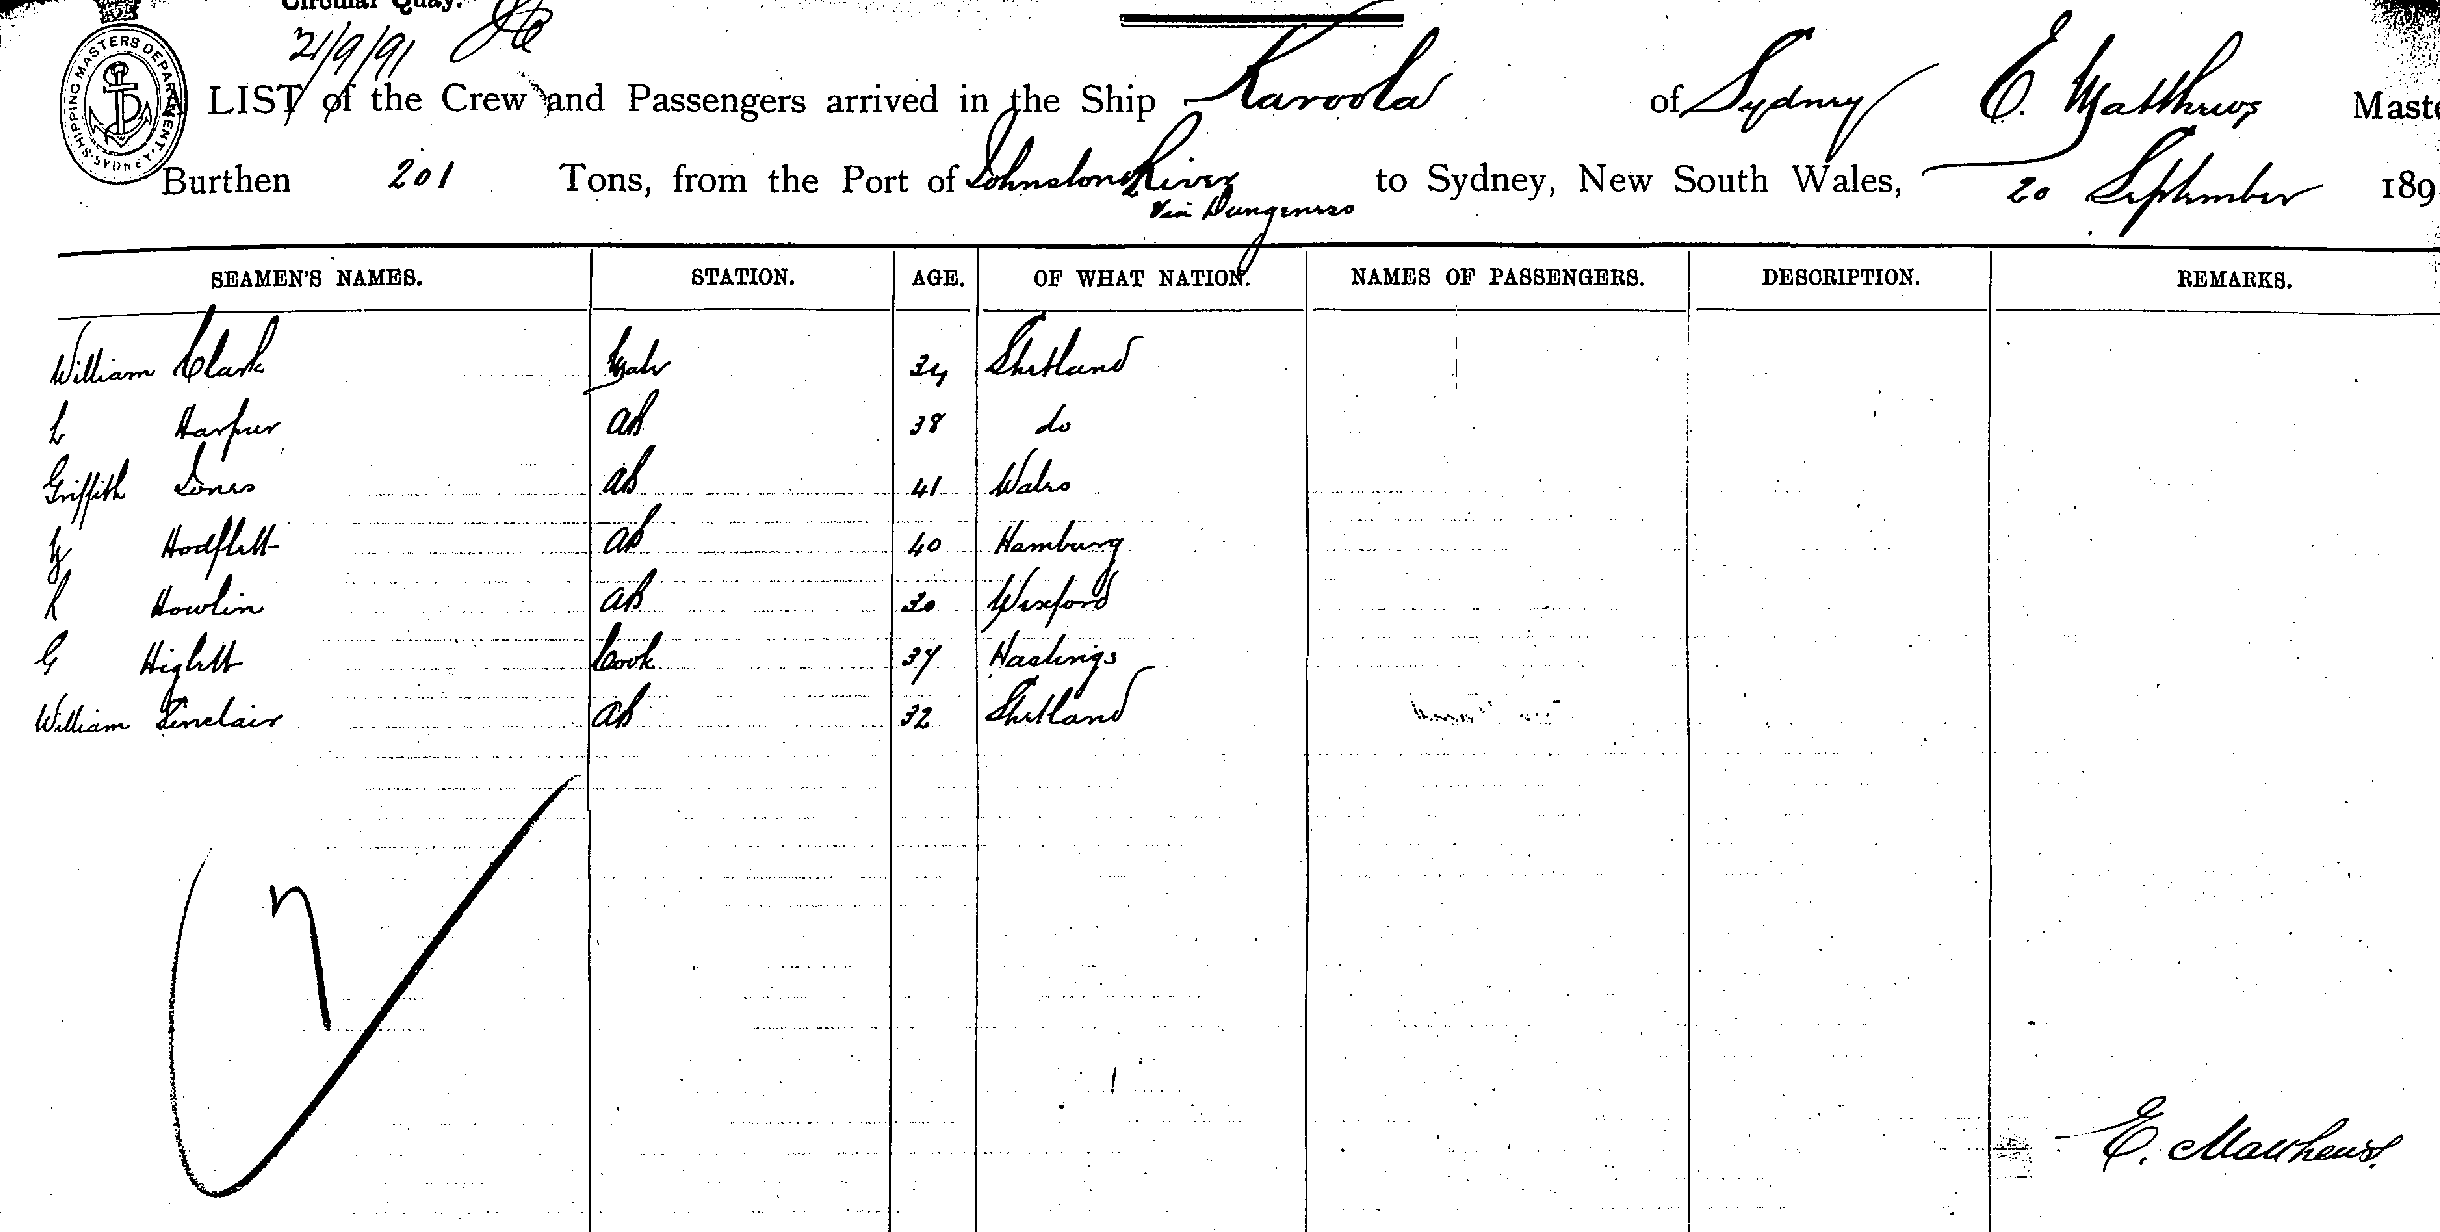 Circular Quay.
21/9/91
SHIPPING MASTERS DEPARTMENT SYDNEY
LIST of the Crew and Passengers arrived in the Ship Karoola of Sydney E. Matthews Maste
Burthen 201 Tons, from the Port of Johnstone River to Sydney, New South Wales, 20 September 189
Via Dungeness
SEAMEN'S NAMES. STATION. AGE. OF WHAT NATION. NAMES OF PASSENGERS. DESCRIPTION. REMARKS.
William Clark Mate 34 Shetland
L Harper AB 38 do
Griffith Jones AB 41 Wales
AB 40 Hamburg
Howlin AB 30 Wexford
G Higlett Cook 37 Hastings
William Sinclair AB 32 Shetland
7
E. Matthews.